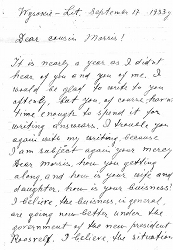 Wysokie-Lit. September 17 1933 y
Dear cousin Morris!
It is nearly a year as I didn't
hear of you and you of me. I
would be glad to write to you
often, but you, of course, have
time enough to spend it for
writing answears. I trouble you
again with my writing, because
I am subject again your mercy.
Dear Morris, how you getting
along and how is your wife and
daughter, how is your buisness?
I believe the buisness in general
are going now better under the
government of the new president
Roosvelt. I believe, the situation